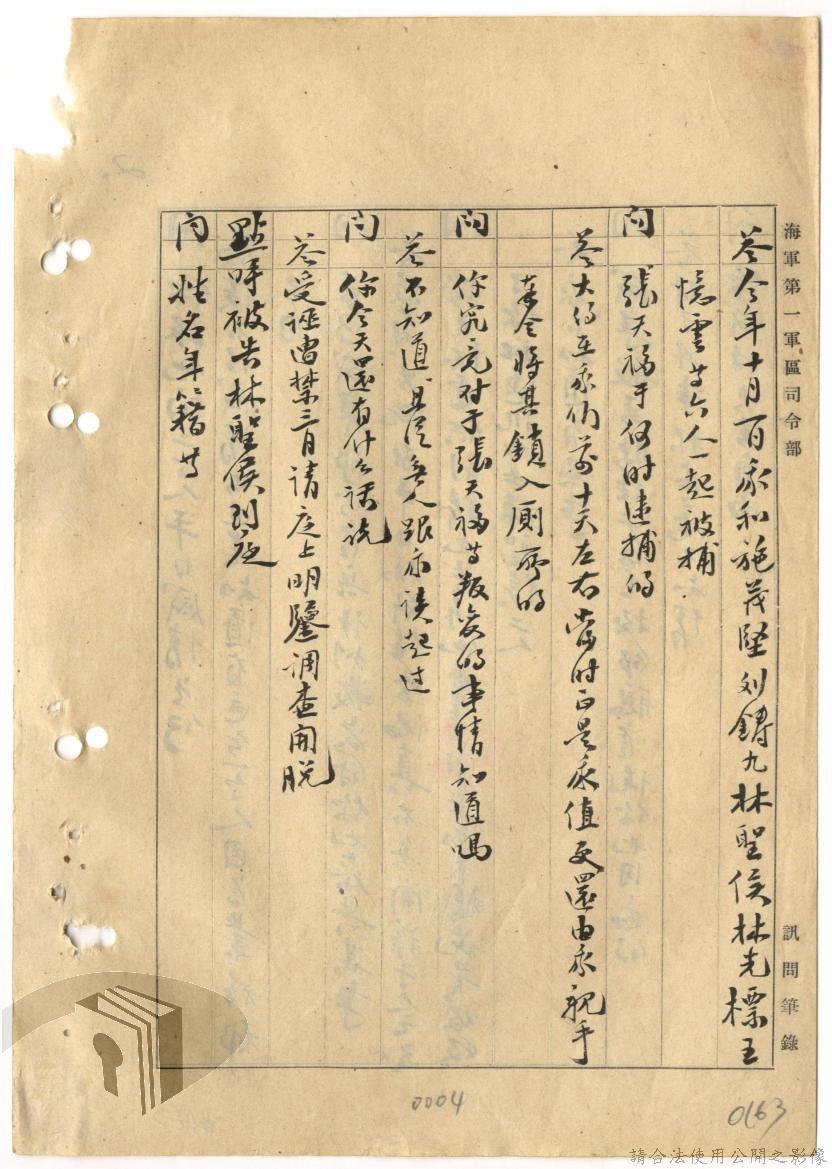 海軍第一軍區司令部 訊問筆錄
答 今年十月一日我和施茂堅刘鑄九林聖侯林光標王
憶雲等六人一起被捕
問 張天福于何时逮捕的
答 大约在我们前十天左右當时正是我值更還由我親手
奉令將其鎖入厕所的
問 你究竟对于張天福等叛变的事情知道嗎
答 不知道且從無人跟我谈起过
問 你今天還有什么话说
答 受誣遭禁三月请庭上明鑒调查開脱
點呼被告林聖侯到庭
問 姓名年籍等
0004
0163
請合法使用公開之影像